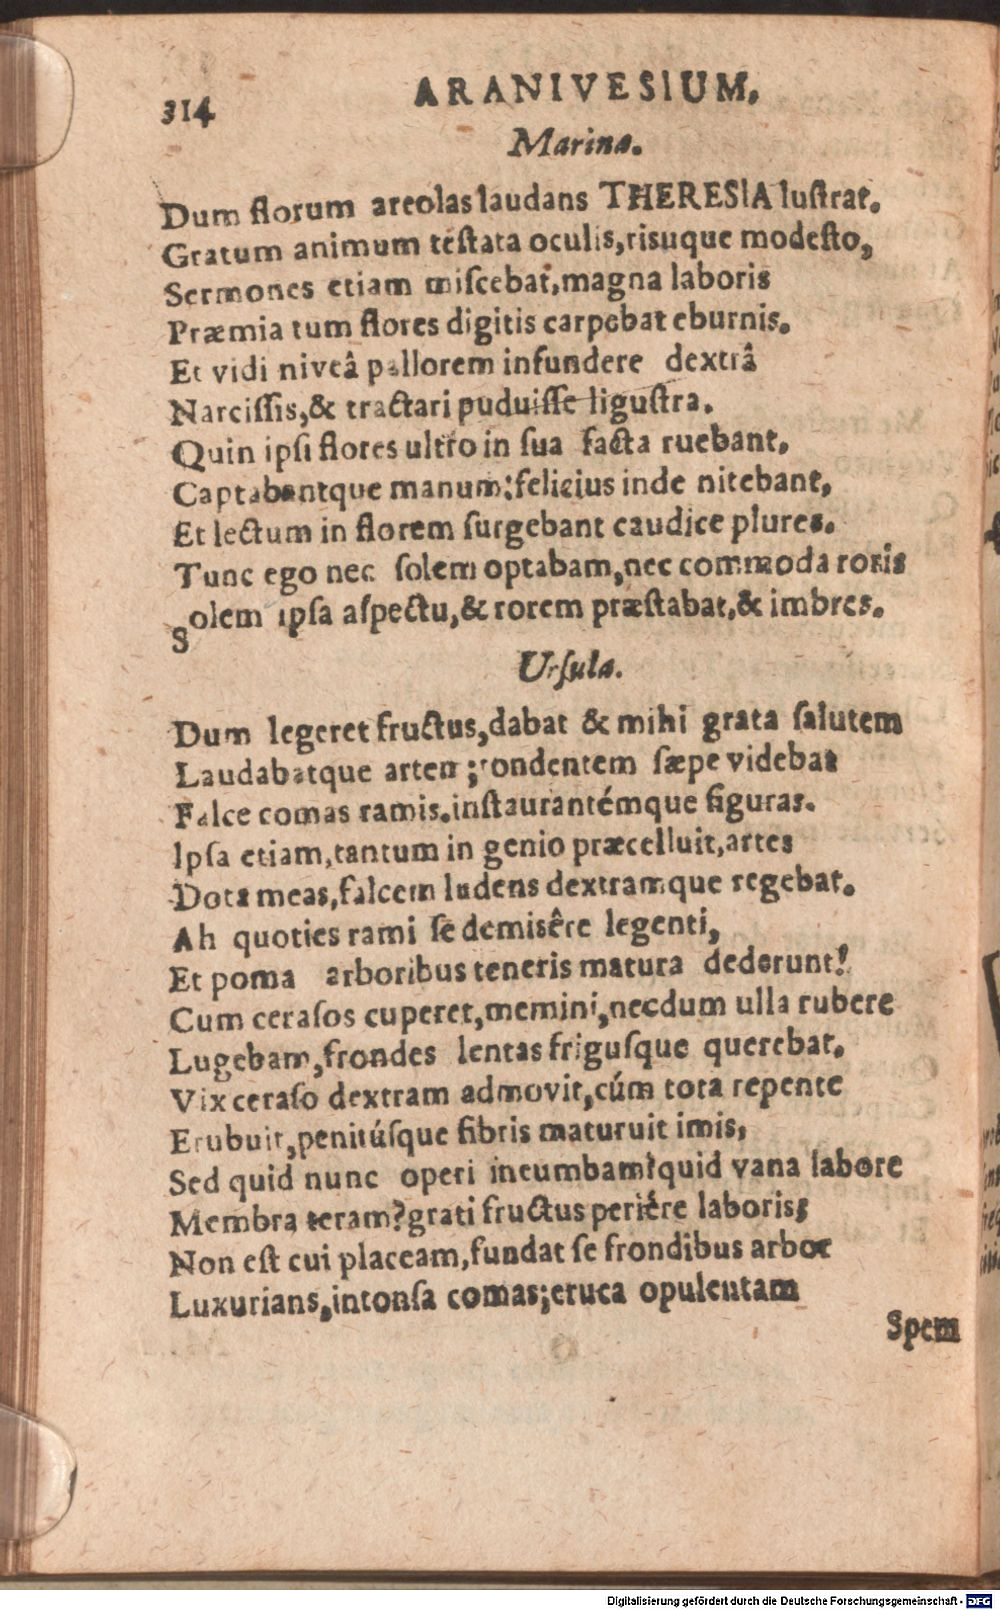 314
ARANIVESIUM,
Marina.
Dum florum areolas laudans THERESIA luſtrat.
Gratum animum teſtata oculis, risuque modeſto,
Sermones etiam miſcebat, magna laboris
Præmia tum flores digitis carpebat eburnis.
Et vidi niveâ pallorem infundere dextrâ
Narciſſis, & tractari puduiſſe liguſtra.
Quin ipſi flores ultro in ſua facta ruebant,
Captabantque manum: felicius inde nitebant,
Et lectum in florem ſurgebant caudice plures.
Tunc ego nec ſolem optabam, nec commoda roris
Solem ipſa aſpectu, & rorem præſtabat, & imbres.
Urſula.
Dum legeret fructus, dabat & mihi grata ſalutem
Laudabatque artem; tondentem ſæpe videbat
Falce comas ramis. inſtaurantémque figuras.
Ipſa etiam, tantum in genio præcelluit, artes
Dota meas, falcem ludens dextramque regebat.
Ah quoties rami ſe demisêre legenti,
Et poma arboribus teneris matura dederunt!
Cum ceraſos cuperet, memini, necdum ulla rubere
Lugebam, frondes lentas frigusque querebat.
Vix ceraſo dextram admovit, cúm tota repente
Erubuit, penitúſque fibris maturuit imis,
Sed quid nunc operi incumbam? quid vana labore
Membra teram? grati fructus periêre laboris;
Non eſt cui placeam, fundat ſe frondibus arbor
Luxurians, intonſa comas; eruca opulentam
Spem
Digitalisierung gefördert durch die Deutsche Forschungsgemeinschaft - DFG